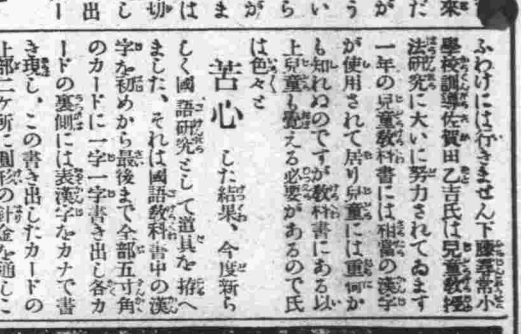 ふわけには行きません下藤尋常小
學校訓導佐賀田乙吉氏は兒童敎授
法研究に大いに努力されてゐます
一年の兒童敎科書には相當の漢字
が使用されて居り兒童には重何か
も知れぬのですが敎科書にある以
上兒童も覺える必要があるので氏
は色々と
苦心した結果、今度新ら
しく國語研究として道具を拵へ
ました、それは國語敎科書中の漢
字を初めから最後まで全部五寸角
のカードに一字一字書き出し各カ
ードの裏側には表漢字をカナで書
き現し、この書き出したカードの
上部二ケ所に圓形の針金を通しに